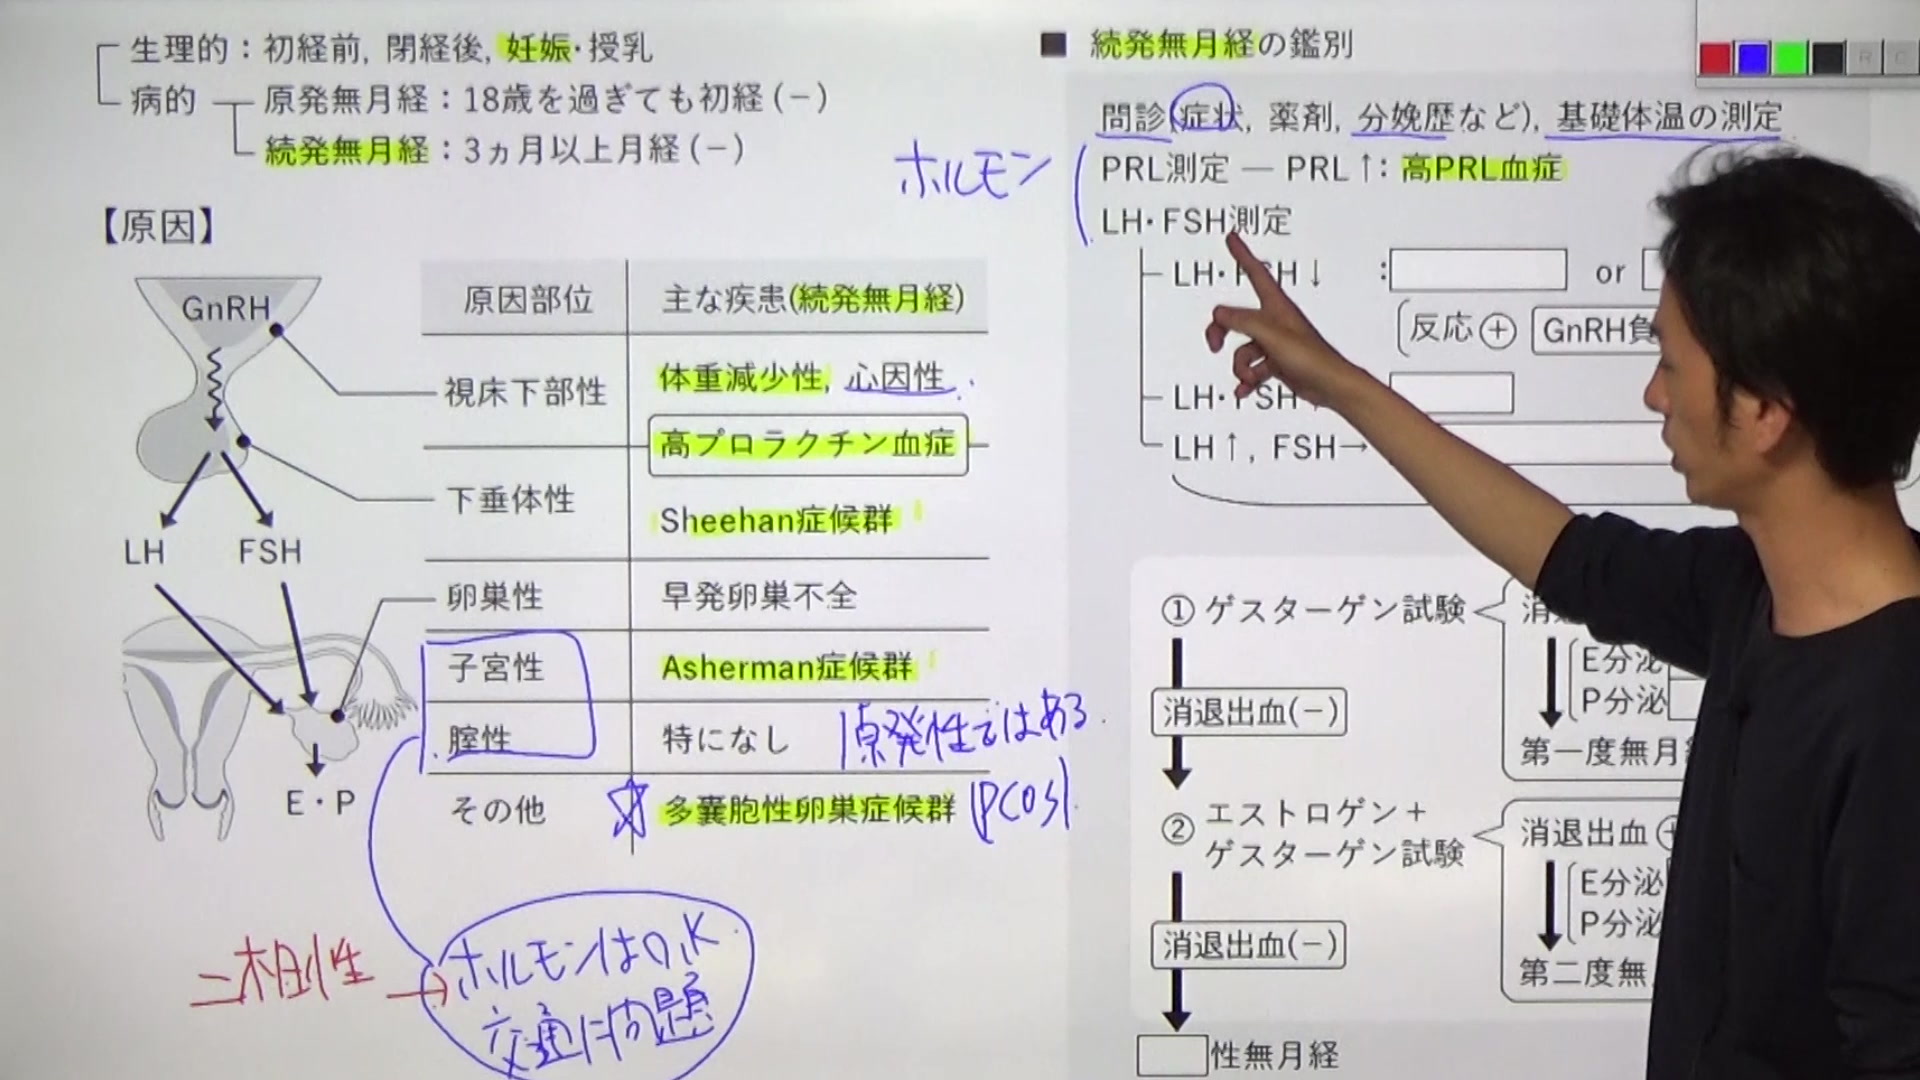 生理的：初経前, 閉経後, 妊娠・授乳
病的
原発無月経：18歳を過ぎても初経(−)
続発無月経：3ヵ月以上月経(−)
【原因】
GnRH
LH
FSH
E・P
原因部位
主な疾患(続発無月経)
視床下部性
体重減少性, 心因性
高プロラクチン血症
下垂体性
Sheehan症候群
卵巣性
早発卵巣不全
子宮性
Asherman症候群
腟性
特になし
原発性ではある
その他
多嚢胞性卵巣症候群
(PCOS)
二相性
→
ホルモンはO.K
交通に問題
■ 続発無月経の鑑別
問診(症状, 薬剤, 分娩歴など), 基礎体温の測定
ホルモン
PRL測定 — PRL↑：高PRL血症
LH・FSH測定
LH・FSH↓ : or
反応⊕ GnRH負
LH・FSH
LH↑, FSH→
① ゲスターゲン試験
消
E分泌
P分泌
第一度無月
消退出血(−)
② エストロゲン＋
ゲスターゲン試験
消退出血
E分泌
P分泌
第二度無
消退出血(−)
性無月経